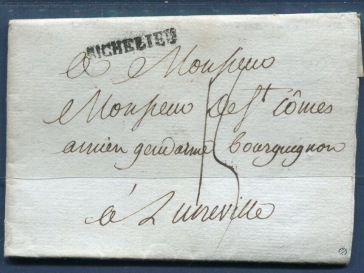 RICHELIEU
a Monsieur
Monsieur de St Cômes
ancien gendarme bourguignon
15
à Luneville